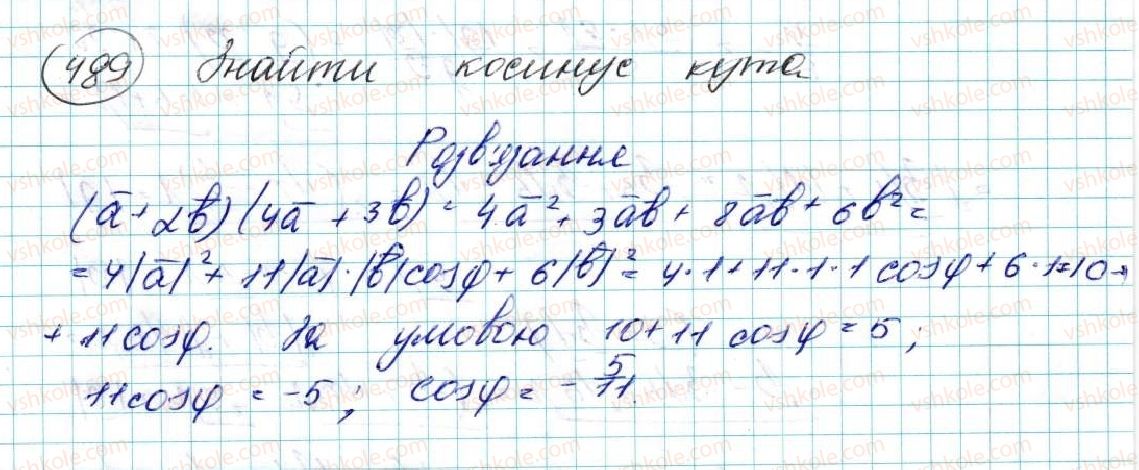 489 Знайти косинус кута
Розв'язання
(ā + 2b̄)(4ā + 3b̄) = 4ā² + 3āb̄ + 8āb̄ + 6b̄² =
= 4|ā|² + 11|ā|·|b̄|cosφ + 6|b̄|² = 4·1 + 11·1·1 cosφ + 6·1 = 10 +
+ 11cosφ. За умовою 10 + 11 cosφ = 5;
11cosφ = -5; cosφ = -5/11.